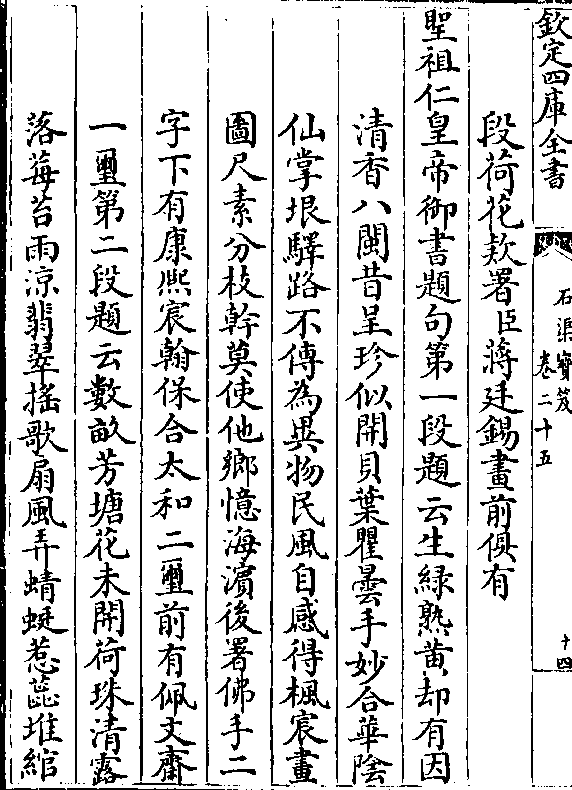 欽定四庫全書
石渠寶笈
卷二十五
十四
段荷花欵署臣蔣廷錫畫前俱有
聖祖仁皇帝御書題句第一段題云生緑熟黄却有因
清香八閩昔呈珍似開貝葉瞿曇手妙合華陰
仙掌垠驛路不傳為異物民風自感得楓宸畫
圖尺素分枝幹莫使他鄉憶海濵後署佛手二
字下有康熙宸翰保合太和二璽前有佩文齋
一璽第二段題云數畝芳塘花未開荷珠清露
落莓苔雨凉翡翠揺歌扇風弄蜻蜓惹蕋堆綰